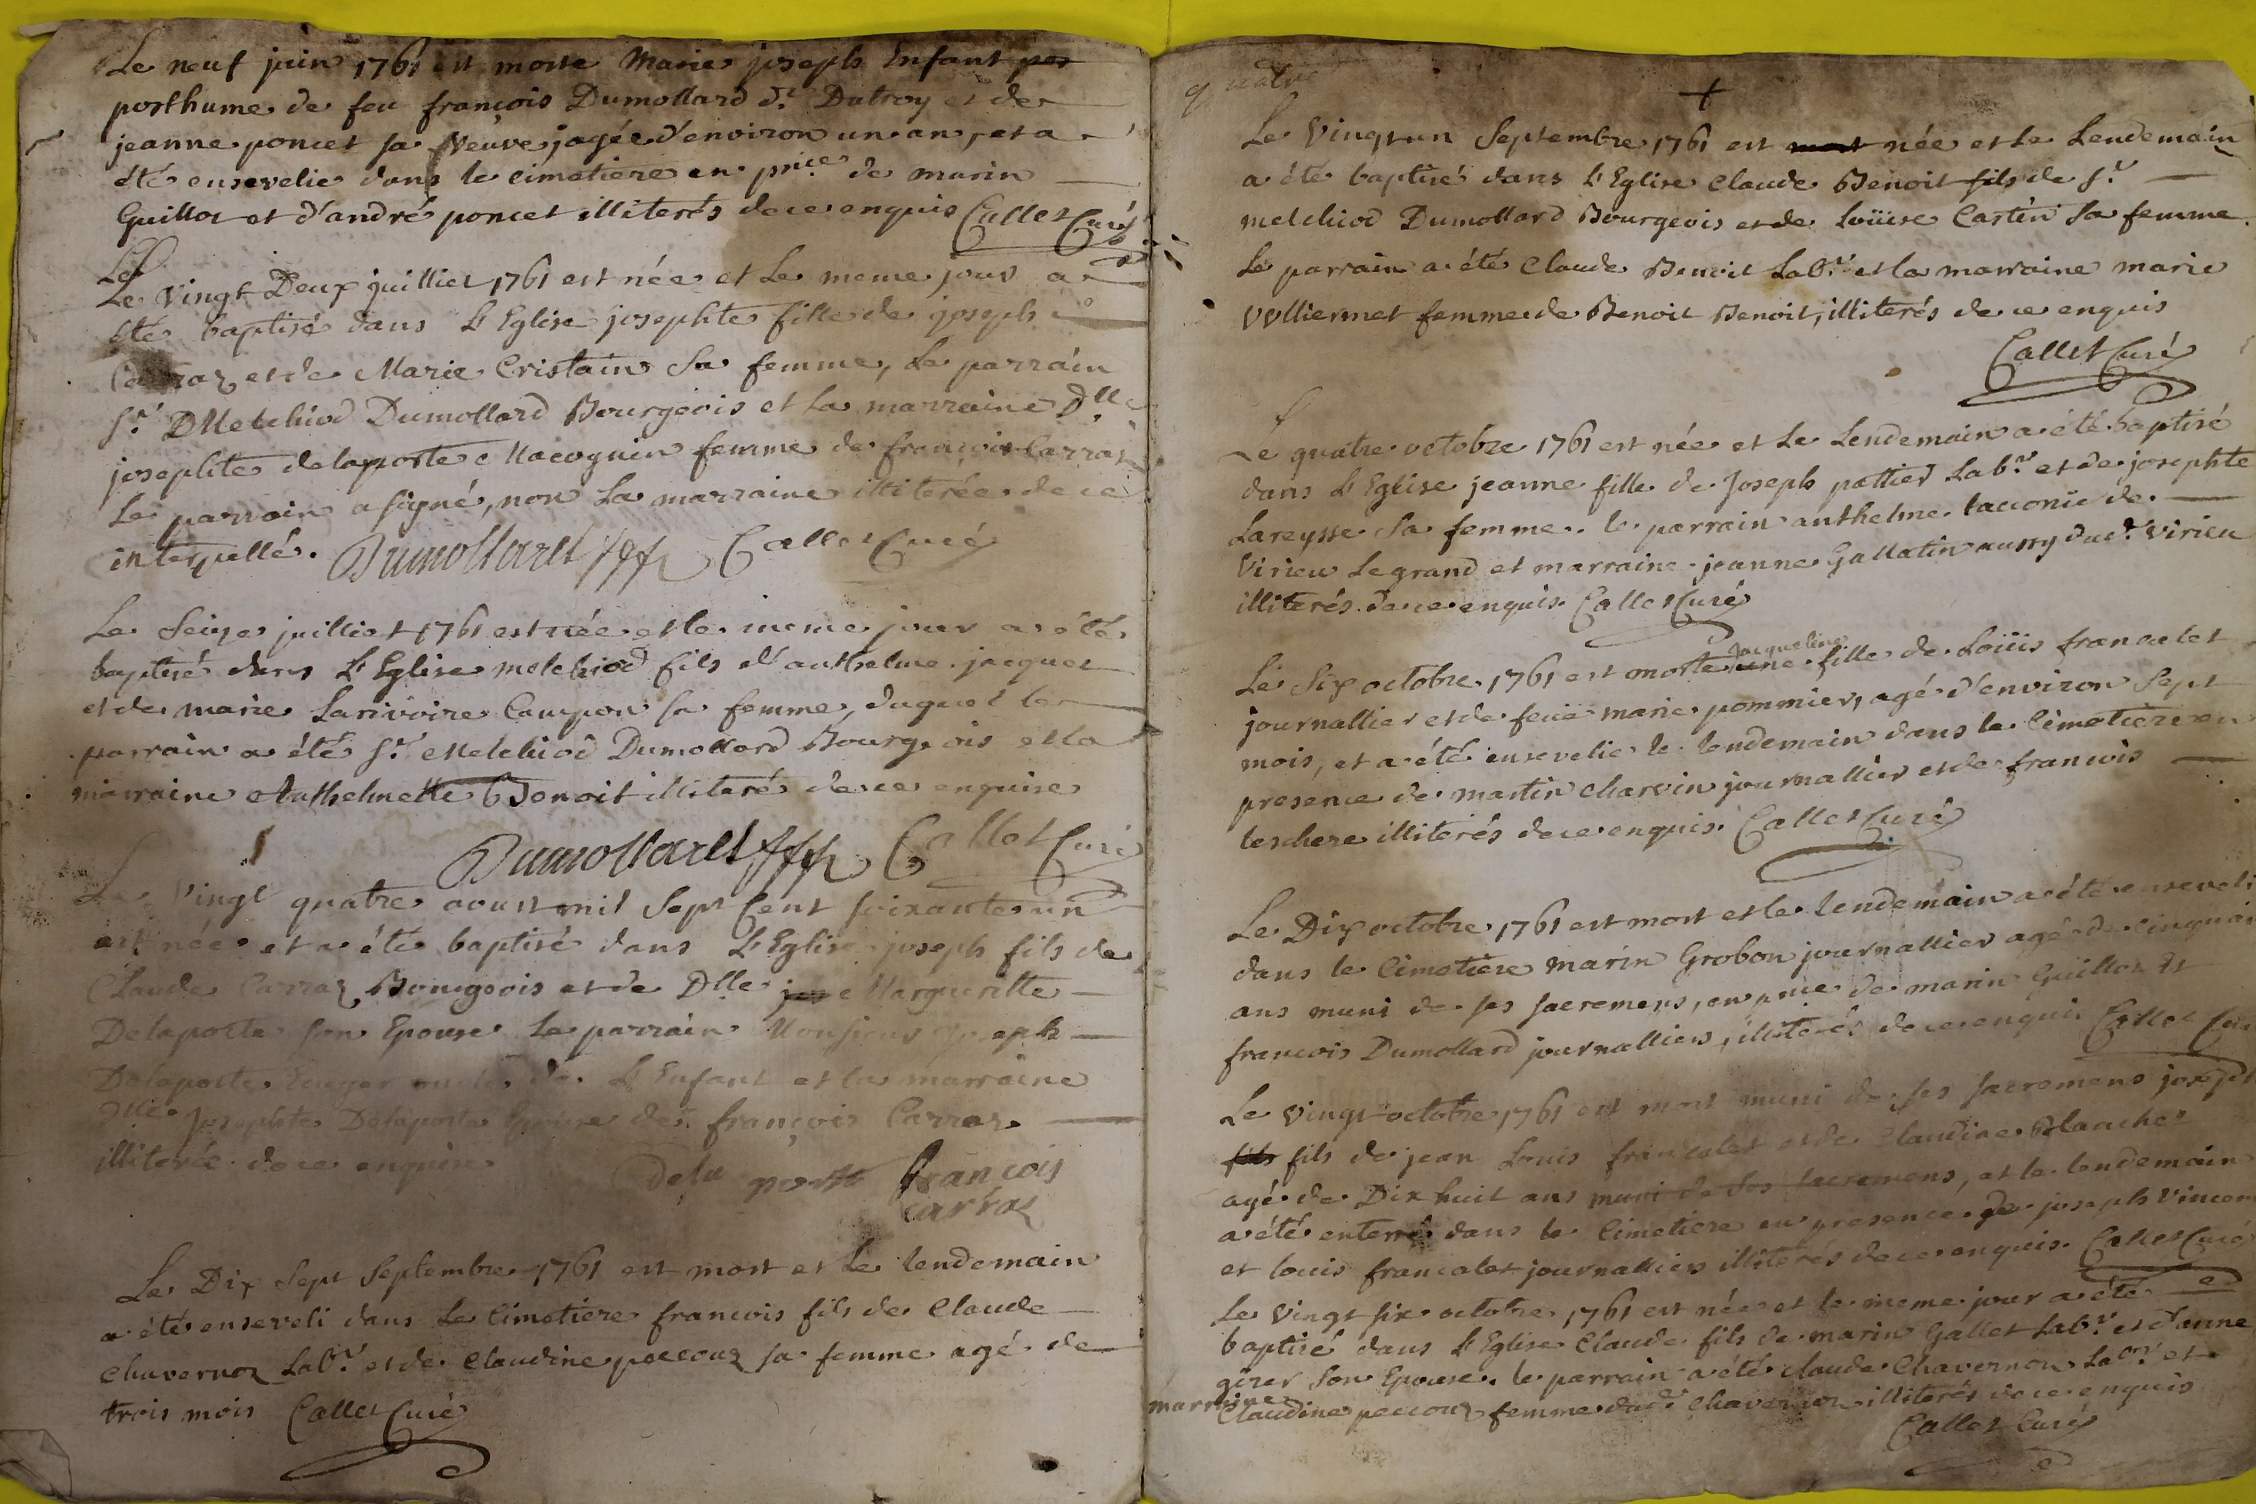 Le neuf juin 1761 est morte Marie joseph Enfant pos
posthume de feu françois Dumollard dt. Dutroy et de
jeanne poncet sa veuve, agée d'environ un an, et a
été ensevelie dans le cimetiere en pnce. de marin
Guillot et d'andré poncet illiterés de ce enquis Callet Curé
Le
Le vingt Deux juilliet 1761 est née et Le meme jour a
été baptisé dans L'Eglise josephte fille de joseph
Carraz et de Marie Cristain Sa femme, Le parrain
Sr. Melchiod Dumollard Bourgeois et La marraine Dlle
josephte delaporte Macognin femme de françois Carraz
Le parrain a signé, non La marraine illiterée de ce
interpellé. Dumollard Callet Curé
Le Seize juilliet 1761 est née et le meme jour a été
baptisé dans L'Eglise melchiod fils d'anthelme jacquet
et de marie Larivoire Campon sa femme, duquel le
parrain a été Sr. Melchiod Dumollard Bourgeois et la
marraine Anthelmette Benoit illiteré de ce enquise
Dumollard Callet Curé
Le vingt quatre aoust mil Sept Cent soixante un
est née et a été baptisé dans L'Eglise joseph fils de
Claude Carraz Bourgeois et de Dlle Margueritte
Delaporte son Epouse Le parrain Monsieur joseph
Delaporte oncle de L'Enfant et la marraine
Dlle Josephte Delaporte Epouse de françois Carraz
illiterée de ce enquise
Dela porte françois
carraz
Le Dix Sept Septembre 1761 est mort et Le lendemain
a été enseveli dans Le Cimetiere francois fils de Claude
Chavernoz Labr. et de Claudine peccouz sa femme agé de
trois mois Callet Curé
quatre
Le vingt un Septembre 1761 est mort née et Le Lendemain
a été baptisé dans L'Eglise Claude Benoit fils de Sr.
melchiod Dumollard Bourgeois et de Loüise Castin Sa femme
Le parrain a été Claude Benoit Labr. et la marraine marie
vulliermet femme de Benoit Benoit, illiterés de ce enquis
Callet Curé
Le quatre octobre 1761 est née et Le Lendemain a été baptisé
dans L'Eglise jeanne fille de Joseph pattier Labr. et de josephte
Lareysse Sa femme. le parrain anthelme tacconie de
Virieu Le grand et marraine jeanne Gallatin aussy dud. Virieu
illiterés de ce enquis Callet Curé
jacqueline
Le Six octobre 1761 est morte une fille de Loüis francalet
journallier et de feüe marie pommier, agé d'environ Sept
mois, et a été ensevelie le lendemain dans le Cimetiere en
presence de martin charvin journallier et de francois
teschere illiterés de ce enquis. Callet Curé
Le Dix octobre 1761 est mort et le lendemain a été enseveli
dans le Cimetiere marin Grobon journallier agé de cinquan
ans muni de ses sacremens, en pnce de marin Guillot et
francois Dumollard journalliers, illiterés de ce enquis Callet Curé
Le vingt octobre 1761 est mort muni de ses sacremens joseph
fils fils de jean Louis francalet et de Claudine Blanchet
agé de Dix huit ans muni de ses sacremens, et le lendemain
a été enterré dans le Cimetiere en presence de joseph vincent
et louis francalet journalliers illiterés de ce enquis. Callet Curé
Le vingt six octobre 1761 est née et le meme jour a été
baptisé dans L'Eglise Claude fils de marin Gallet Labr. et d'anne
girer Son Epouse. le parrain a été claude Chavernon Labr. et
marraine
Claudine peccouz femme dudt. Chavernon illiterés de ce enquis
Callet Curé